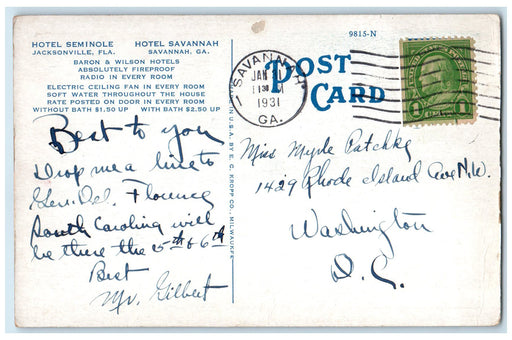 HOTEL SEMINOLE
JACKSONVILLE, FLA.
HOTEL SAVANNAH
SAVANNAH, GA.
BARON & WILSON HOTELS
ABSOLUTELY FIREPROOF
RADIO IN EVERY ROOM
ELECTRIC CEILING FAN IN EVERY ROOM
SOFT WATER THROUGHOUT THE HOUSE
RATE POSTED ON DOOR IN EVERY ROOM
WITHOUT BATH $1.50 UP WITH BATH $2.50 UP
Best to you
Drop me a line to
Gen. Del. Florence
South Carolina will
be there the 5th & 6th
Best
Mr. Gilbert
U.S.A. BY E. C. KROPP CO., MILWAUKEE
9815-N
POST
CARD
SAVANNAH
JAN
1931
GA.
1 1
Miss Myrle Patchke
1429 Rhode Island Ave N.W.
Washington
D. C.